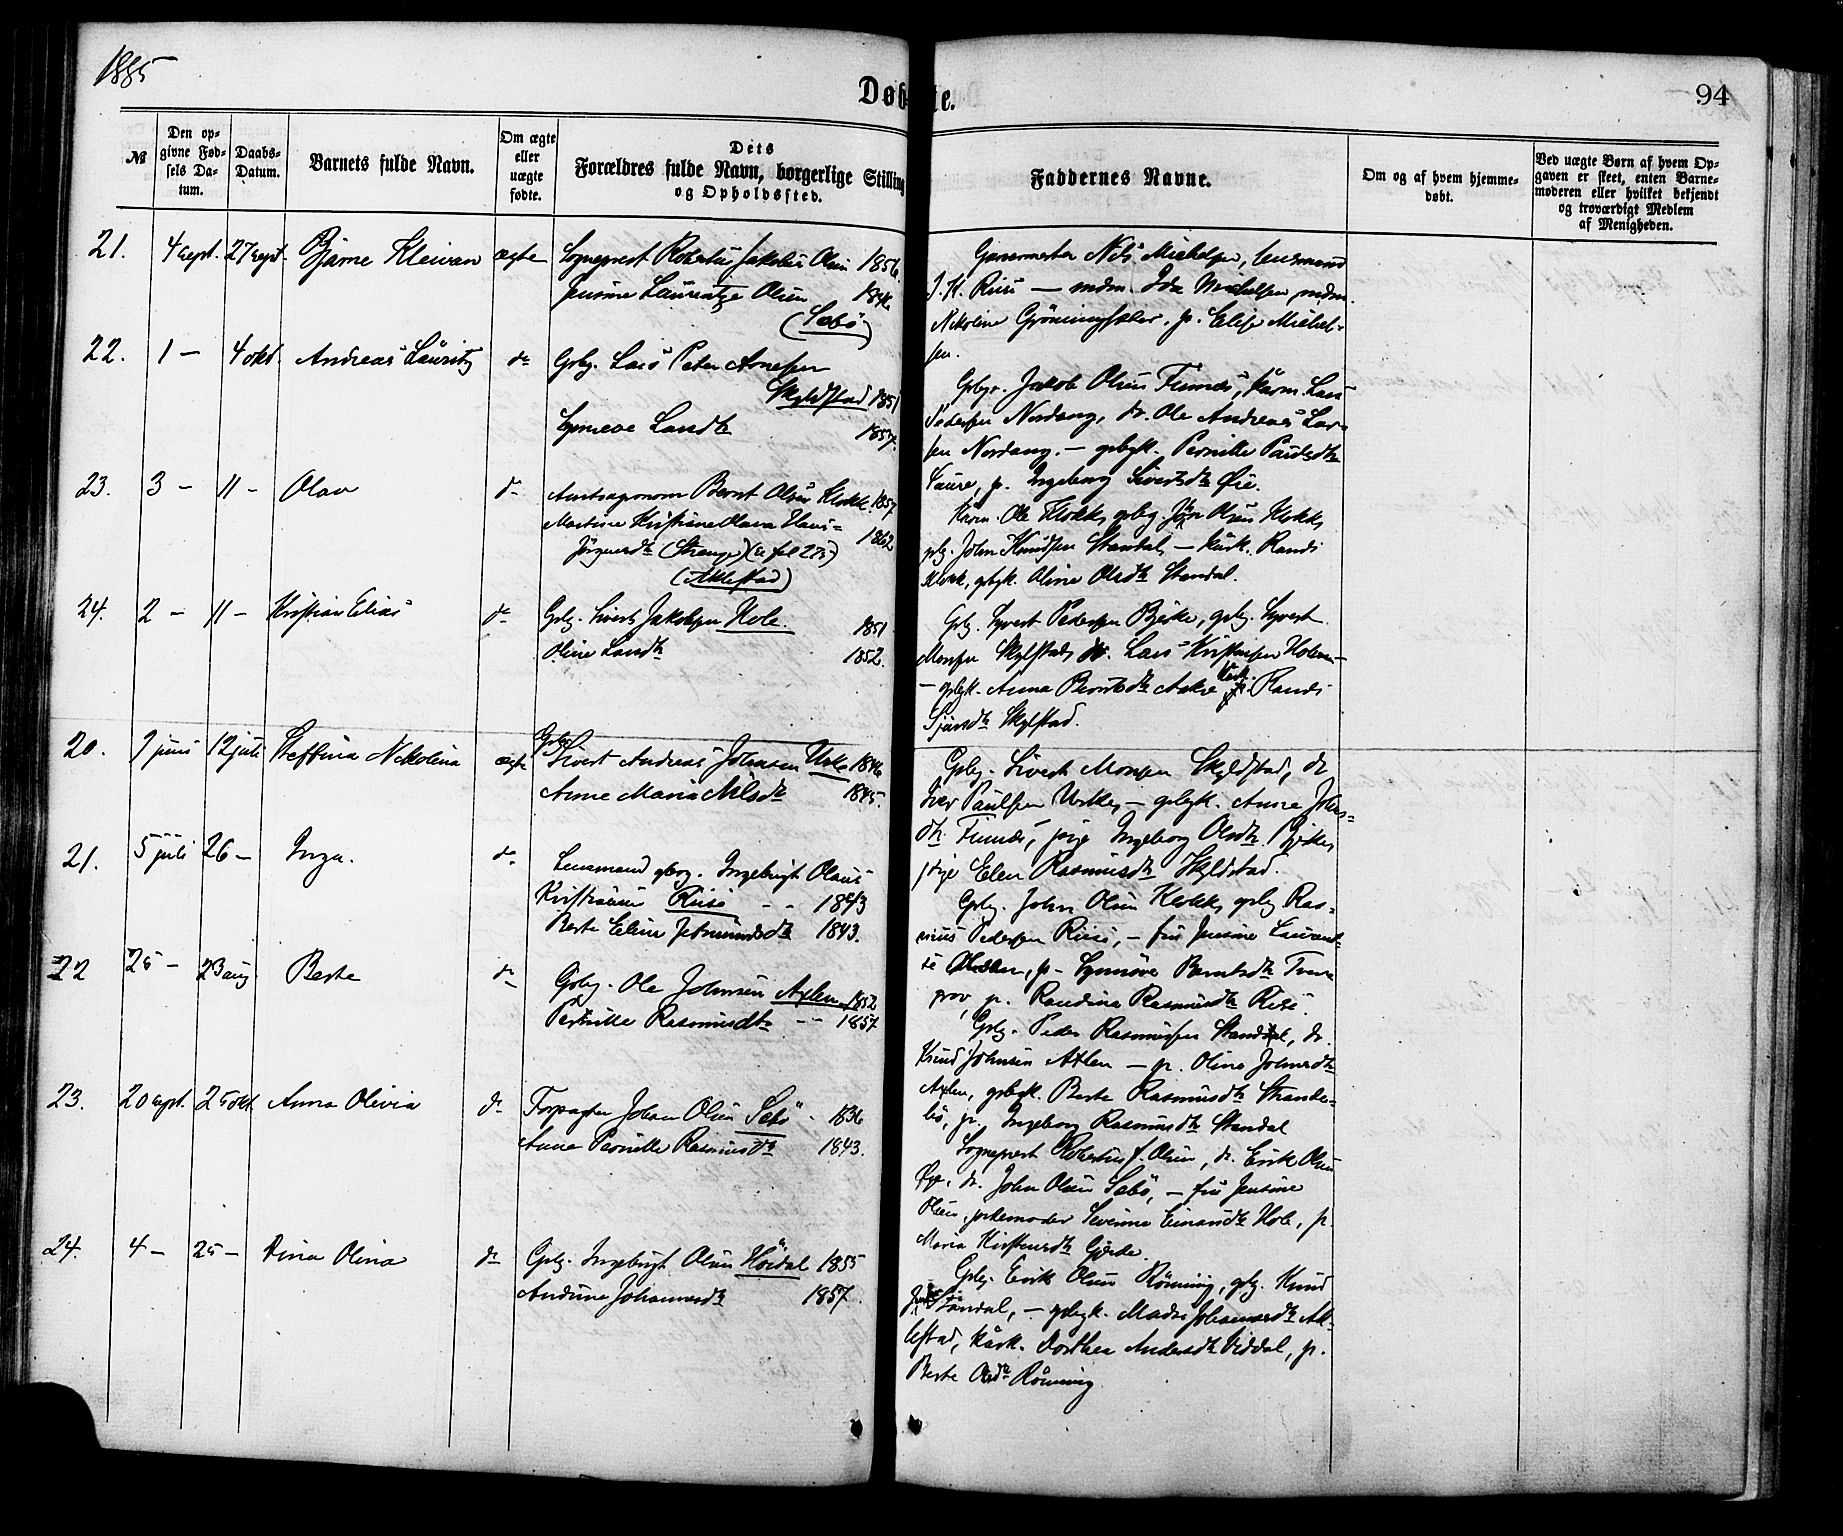 1885
Døbte.
94
№
Den opgivne Fødsels Datum.
Daabs-Datum.
Barnets fulde Navn.
Om ægte eller uægte fødte.
Dets Forældres fulde Navn, borgerlige Stilling og Opholdssted.
Faddernes Navne.
Om og af hvem hjemmedøbt.
Ved uægte Børn af hvem Opgaven er skeet, enten Barnemoderen eller hvilket bekjendt og troværdigt Medlem af Menigheden.
21. 4 sept. 27 sept. Bjarne Kleivan ægte
Sogneprest Robertus Jakobus Olsen 1856
Jensine Laurentze Olsen
(Sæbø)
Nils Michelsen, Lensmand
J. K. Riise — mdm. Ida Michelsen, mdm.
Nikoline Grøningsæter, p. Elise Michel-
sen.
22. 1 — 4 okt. Andreas Lauritz do
Gbg. Lars Peter Arnesen
Skyldstad 1851
Synneve Larsdtr 1857.
Gbgr. Jakob Olsen Fivnes, karm. Lars
Pedersen Nordang, do. Ole Andreas Lar-
sen Nordang. — gbgk. Pernille Paulsdtr
Saure, p. Ingeborg Sivertsdtr Øie.
23. 3 — 11 — Olav do
Amtsagronom Bernt Olsen Klokk. 1857
Martine Kristiane Olava Hans-
Jørgensdtr (Strange) (se fol 275) 1862
(Aklestad)
Karm. Ole Klokk, gbg. Jørn Olsen Klokk,
gbg. John Knudsen Standal, — kark. Randi
Klokk, gbgk. Oline Olsdtr Standal.
24. 2 — 11 — Kristian Elias do
Gbg. Sivert Jakobsen Hole. 1851
Oline Larsdtr 1852.
Gbg. Syvert Pedersen Bjerke, gbg. Syvert
Monsen Skylstad, do. Lars Kristensen Holen —
— gbgk. Anna Berntsdtr Aakre kark. Randi
Sjursdtr Skylstad.
20. 9 juni 12 juli Steffina Nikolina ægte
Gbg. Sivert Andreas Johnsen Urke 1846
Anne Maria Nilsdtr 1845.
Gbg. Sivert Monsen Skyldstad, do
Iver Paulsen Urke, — gbgk. Anne Johns-
dtr. Fivnes, pige Ingeborg Olsdtr Bjerke,
pige Elen Rasmusdtr Skyldstad.
21. 5 juli 26 — Inga. do
Lensmand gbrg. Ingebrigt Olaus
Kristiansen Riise - - 1843
Berte Eline Jetmundsdtr 1843.
Gbg. John Olsen Klokk, gbg Ras-
mus Pedersen Riise, — fru Jensine Laurent-
se Olsen, p. Synnøve Berntsdtr
p. Randina Rasmusdtr Riise.
22 25 — 23 aug Berte do
Gbg. Ole Johnsen Axlen 1852
Pernille Rasmusdtr - - 1857
Gbg. Peder Rasmussen Standal, do.
Knud Johnsen Axlen — p. Oline Johnsdtr
Axlen, gbgk. Berte Rasmusdtr Strande-
bø, p. Ingeborg Rasmusdtr Standal
23. 20 sept. 25 okt. Anna Olivia do
Forpagter Johan Olsen Sæbø - 1836
Anne Pernille Rasmusdtr 1843.
Sogneprest Robertus J. Olsen, do. Erik Olsen
Øye, do. John Olsen Sæbø, — fru Jensine
Olsen, jordemoder Severine Einarsdtr Hole, p.
Maria Kirstensdtr Gjerde.
24. 4 — 25 — Dina Olina do
Gbg. Ingebrigt Olsen Høidal 1855
Andrine Johannesdtr 1857.
Gbg. Erik Olsen Rønning, gbg. Knud
Standal, — gbgk. Madse Johannesdtr Ak-
lestad, kark. Dorthea Andersdtr Viddal, p.
Berte Olsdtr Rønning